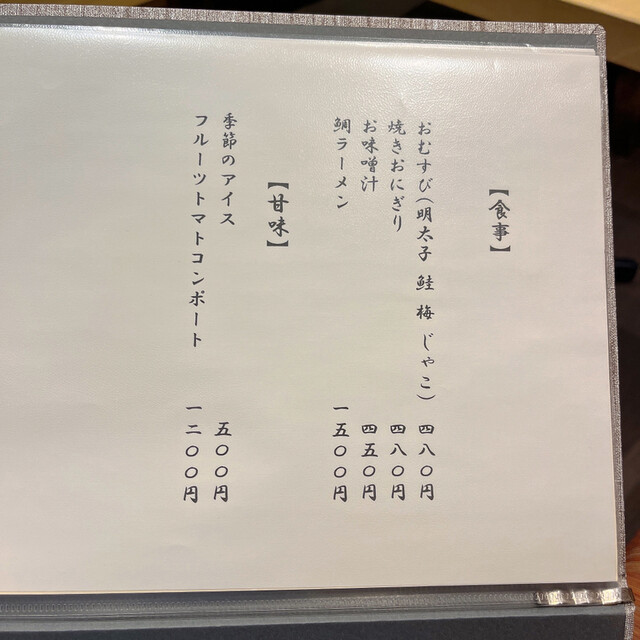 【食事】
おむすび(明太子 鮭 梅 じゃこ) 四八〇円
焼きおにぎり 四八〇円
お味噌汁 四五〇円
鯛ラーメン 一五〇〇円
【甘味】
季節のアイス 五〇〇円
フルーツトマトコンポート 一二〇〇円